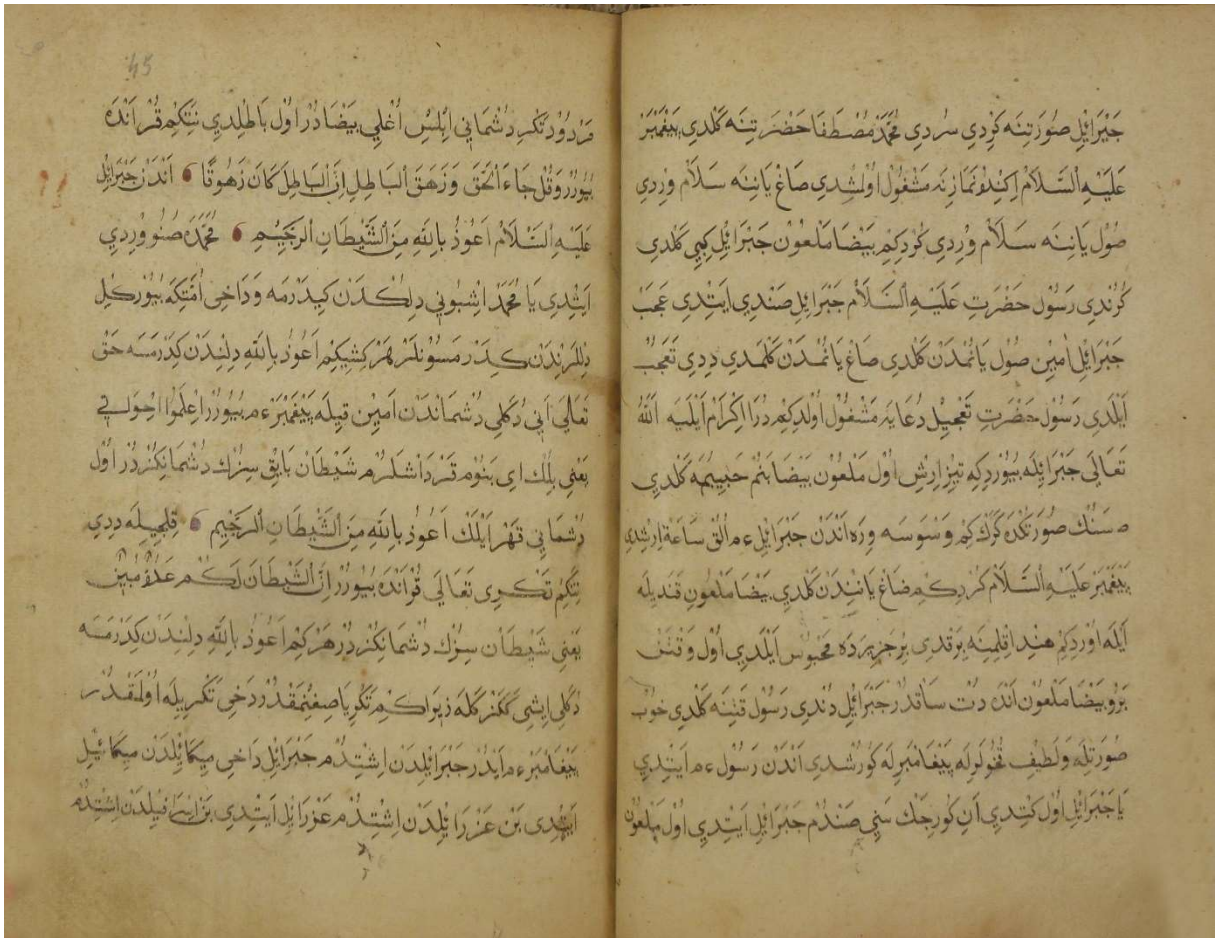 جَبْرَائِل صُورَتِنَه كِرْدِي سُردِي مُحَمَّدْ مُصْطَفَا حَضْرَتِنَه كَلْدِي پَيْغَمْبَرْ
عَلَيْهِ اَلسَّلَامْ اِكِنْدُو نَمَازِنَه مَشْغُولْ اُولْمُشِدِي صَاغْ يَانِنَه سَلَامْ وِرْدِي
صُولْ يَانِنَه سَلَامْ وِرْدِي كُرْدِكِمْ بَيْضَا مَلْعُونْ جَبْرَائِلْ كِبِي كَلْدِي
كُرُنْدِي رَسُولْ حَضْرَتِ عَلَيْهِ اَلسَّلَامْ جَبْرَائِلْ صَنْدِي اَيَتْدِي عَجَبْ
جَبْرَائِلِ اَمِينْ صُولْ يَانُمْدَنْ كَلْدِي صَاغْ يَانُمْدَنْ كَلْمَدِي دِدِي تَعَجُّبْ
اَيْلَدِي رَسُولْ حَضْرَتِ تَعْجِيلْ دُعَايَه مَشْغُولْ اُولْدِكِمْ دُرَا اِكْرَامْ اَيْلَيَه اَللّٰهُ
تَعَالَى جَبْرَائِلَه بُيُورْدِكِه تِيزْ اِرِشْ اُولْ مَلْعُونْ بَيْضَا بَنُمْ حَبِيبُمَه كَلْدِي
سَنُكْ صُورَتُكْدَه كَرَكْ كِمْ وَسْوَسَه وِرَه اَنْدَنْ جَبْرَائِلْ ءم اُلْقْ سَاعَة اِرِشْدِي
پَيْغَمْبَرْ عَلَيْهِ اَلسَّلَامْ كُرْدِكِمْ صَاغْ يَانِنْدَنْ كَلْدِي بَيْضَا مَلْعُونِ قَنَدِيلَه
اَيْلَه اُورْدِكِمْ هِنْدْ اِقْلِمِنَه بِرَقْدِي بِرْ جَزِيرَدَه مَحْبُوسْ اَيْلَدِي اُولْ وَقْتَنْ
بَرُو بَيْضَا مَلْعُونْ اَنْدَه دُتْسَاقْدُرْ جَبْرَائِلْ دُنْدِي رَسُولْ قَتِنَه كَلْدِي خُوبْ
صُورَتِلَه وَلَطِيفْ قُخُولَرِلَه پَيْغَامْبَرِلَه كُورُشْدِي اَنْدَنْ رَسُولْ ءم اَيَتْدِي
يَا جَبْرَائِلْ اُولْ كِتْدِي اَنِ كُورِجَكْ سَنِي صَنْدُمْ جَبْرَائِلْ اَيَتْدِي اُولْ مَلْعُونْ
45
مَرْدُودْ تَكْرِ دُشْمَانِي اِبْلِسْ اُغْلِي بَيْضَادُرْ اُولْ بَاطِلِدِي نِتَكِمْ قُرْاَنْدَه
بُيُورُرْ وَقُلْ جَاءَ اَلْحَقُّ وَزَهَقَ اَلْبَاطِلُ اِنَّ اَلْبَاطِلَ كَانَ زَهُوقًا اَنْدَنْ جَبْرَائِلْ
عَلَيْهِ اَلسَّلَامْ اَعُوذُ بِاللّٰهِ مِنَ اَلشَّيْطَانِ اَلرَّجِيمِ مُحَمَّدَه صُنُو وِرْدِي
اَيَتْدِي يَا مُحَمَّدْ اِشْبُونِي دِلُكْدَنْ كِيدَرْمَه وَدَاخِي اُمَّتِكَه بُيُورْكِلْ
دِلْلَرِنْدَنْ كِدَرْمَسُونْلَرْ هَرْ كِشِيكِمْ اَعُوذُ بِاللّٰهِ دِلِنْدَنْ كِدَرْمَسَه حَقْ
تَعَالَى اَنِي دُكَلِي دُشْمَانْدَنْ اَمِينْ قِيلَه پَيْغَمْبَرْ ءم بُيُورُرْ اِعْلَمُوا اِخْوَانِي
يَعْنِي بِلُكْ اَيْ بَنُومْ قَرْدَاشْلَرُمْ شَيْطَانْ بَايِقْ سِزُكْ دُشْمَانِكُزْدُرْ اُولْ
دُشْمَانِي قَهْرْ اَيْلَكْ اَعُوذُ بِاللّٰهِ مِنَ اَلشَّيْطَانِ اَلرَّجِيمِ قِلِجِيلَه دِدِي
نِتَكِمْ تَكْرِى تَعَالَى قُرْاَنْدَه بُيُورُرْ اِنَّ اَلشَّيْطَانَ لَكُمْ عَدُوٌّ مُبِينٌ
يَعْنِي شَيْطَانْ سِزُكْ دُشْمَانِكُزْدُرْ هَرْ كِمْ اَعُوذُ بِاللّٰهِ دِلِنْدَنْ كِدَرْمَسَه
دُكَلِي اِيشِي كَكَزْ كَلَه زِيرَاكِمْ تَكْرِيَا صِغِنْمَقْدُرْ دَخِي تَكْرِيلَه اُولْمَقْدُرْ
پَيْغَامْبَرْ ءم اَيْدُرْ جَبْرَائِلْدَنْ اِشِتْدُمْ جَبْرَائِلْ دَاخِي مِيكَائِلْدَنْ مِيكَائِيلْ
اَيَتْدِى بَنْ عَزْرَائِلْدَنْ اِشِتْدُمْ عَزْرَايِلْ اَيَتْدِى بَنْ اِسْرَافِيلْدَنْ اِشِتْدُمْ